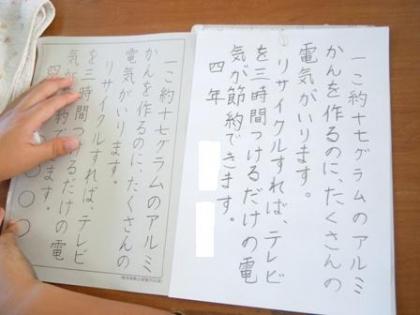 一こ約十七グラムのアルミ
かんを作るのに、たくさんの
電気がいります。
リサイクルすれば、テレビ
を三時間つけるだけの電
気が節約できます。
四年
一こ約十七グラムのアルミ
かんを作るのに、たくさんの
電気がいります。
リサイクルすれば、テレビ
を三時間つけるだけの電
気が節約できます。
四年